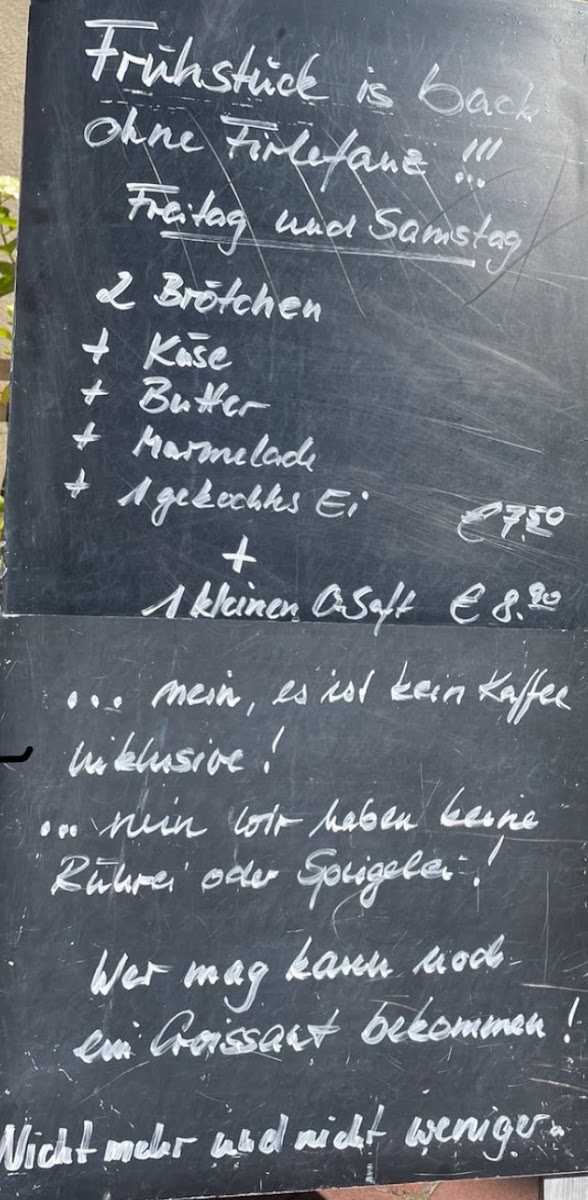 Frühstück is back
ohne Firlefanz !!!
Freitag und Samstag
2 Brötchen
+ Käse
+ Butter
+ Marmelade
+ 1 gekochtes Ei €7.50
+
1 kleinen O-Saft € 8.90
... nein, es ist kein Kaffee
inklusive!
... nein wir haben keine
Rührei oder Spiegelei!
Wer mag kann noch
ein Croissant bekommen!
Nicht mehr und nicht weniger.